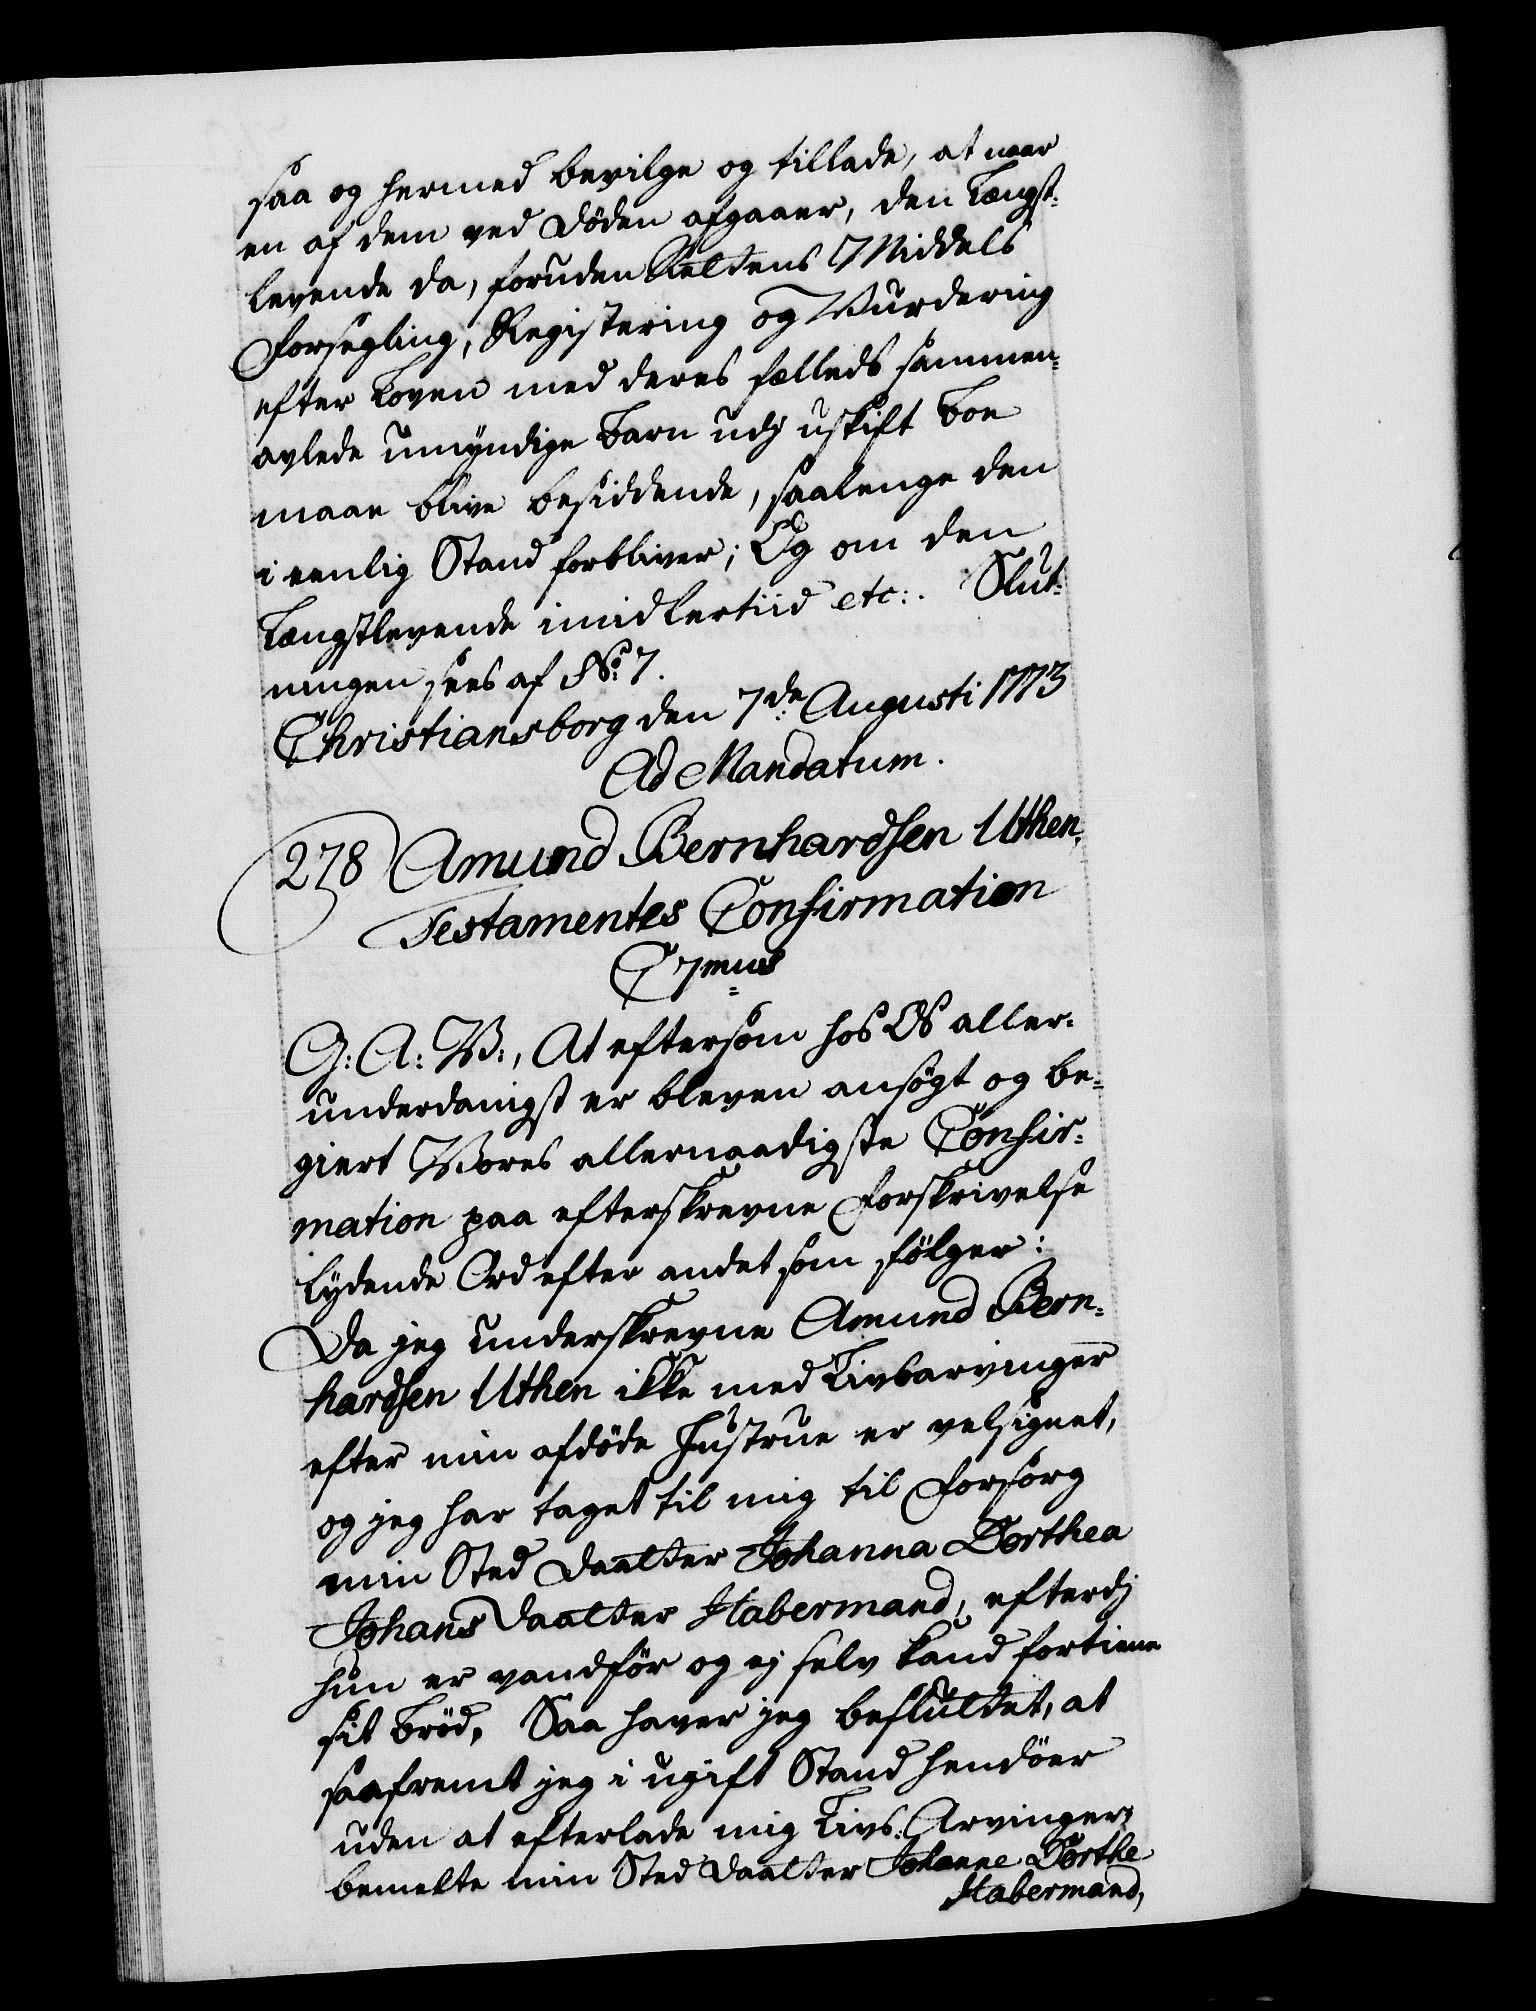 saa og hermed bevilge og tillade, at naar
en af dem ved Döden afgaaer, den Længst-
levende da, foruden Rettens Middels
Forsegling, Registering og Vurdering
efter Loven med deres fælleds sammen-
avlede umyndige Barn udj uskift Boe
maae blive besiddende, saalenge den
i eenlig Stand forbliver; Og om den
Længstlevende imidlertiid etc:. Slut-
ningen sees af No 7.
Christiansborg den 7de Augusti 1773
Ad Mandatum.
278 Amund Bernhardsen Uthen,
Testamentes Confirmation
C 7mus
G: A: V:, At eftersom hos Os aller-
underdanigst er bleven ansögt og be-
giert Vores allernaadigste Confir-
mation paa efterskrevne Forskrivelse
lydende Ord efter andet som fölger:
Da jeg underskrevne Amund Bern-
hardsen Uthen ikke med Livsarvinger
efter min afdöde Hustrue er velsignet,
og jeg har taget til mig til Forsorg
min Sted Daatter Johanna Dorthea
Johans Daatter Habermand, efterdj
hun er vandför og ej selv kand fortiene
sit Bröd, Saa haver jeg besluttet, at
saafremt jeg i ugift Stand hendöer
uden at efterlade mig Livs: Arvinger,
bemelte min Sted Daatter Johanne Dorthe
Habermand,